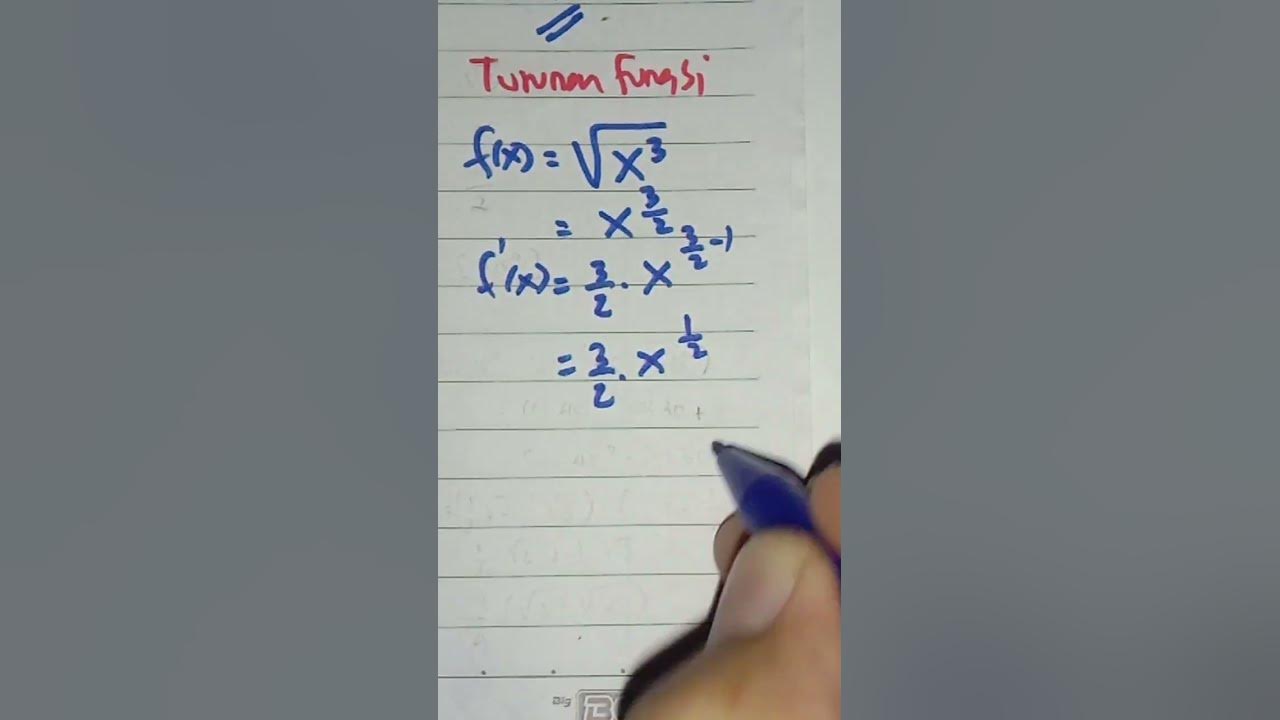 Turunan fungsi
f(x) = √x³
= x^(3/2)
f'(x) = 3/2 . x^(3/2 - 1)
= 3/2 . x^(1/2)
Big